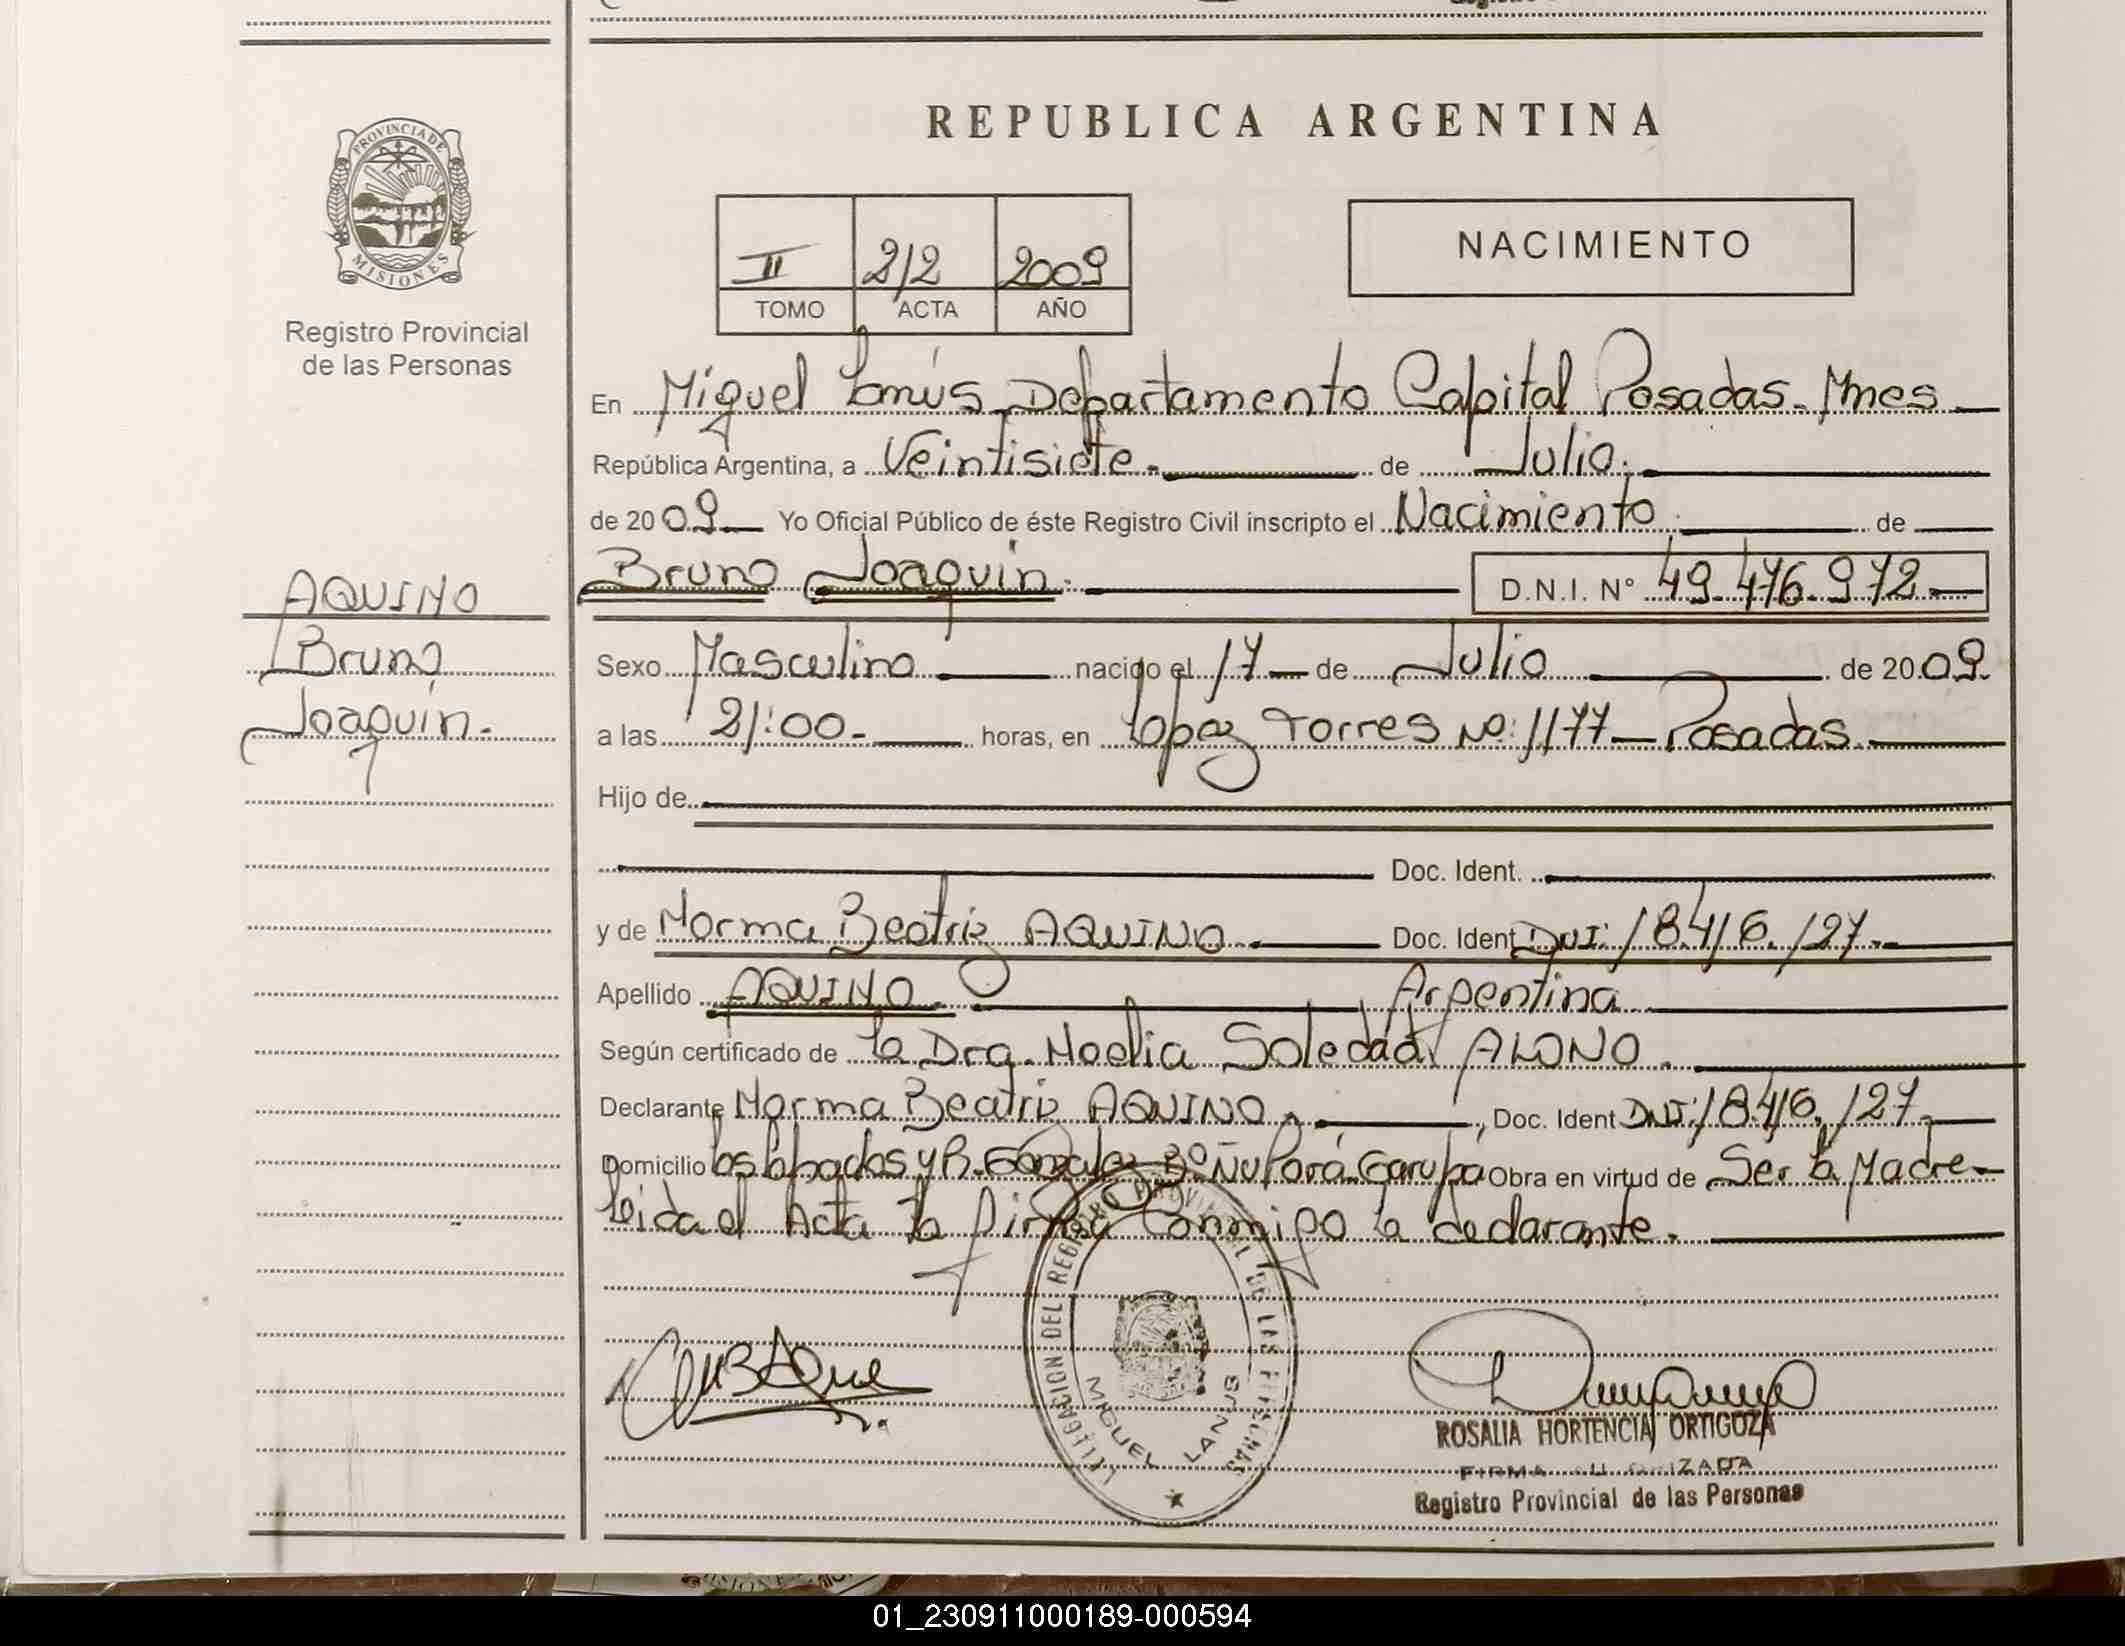 REPUBLICA ARGENTINA
PROVINCIA DE MISIONES
Registro Provincial
de las Personas
II 212 2009
TOMO ACTA AÑO
NACIMIENTO
En Miguel Lanús Departamento Capital Posadas - Mnes
República Argentina, a Veintisiete.- de Julio.
de 2009 Yo Oficial Público de éste Registro Civil inscripto el Nacimiento de
Bruno Joaquín. D.N.I. Nº 49.476.972
AQUINO
Bruno
Joaquín.-
Sexo Masculino nacido el 17 de Julio de 2009.
a las 21:00.- horas, en Lopez Torres Nº: 1177 - Posadas.
Hijo de
Doc. Ident.
y de Norma Beatriz AQUINO.- Doc. Ident DNI: 18.416.127.-
Apellido AQUINO.- Argentina
Según certificado de la Dra. Noelia Soledad ALONO.
Declarante Norma Beatriz AQUINO.- , Doc. Ident DNI: 18.416.127.-
Domicilio los y R. Gonzalez Bº Ñu Porá - Garupa Obra en virtud de Ser la Madre-
Leida el Acta la firma Conmigo la declarante.-
DELEGACION DEL REGISTRO PROVINCIAL DE LAS PERSONAS
MIGUEL LANUS
ROSALIA HORTENCIA ORTIGOZA
FIRMA AUTORIZADA
Registro Provincial de las Personas
01_230911000189-000594